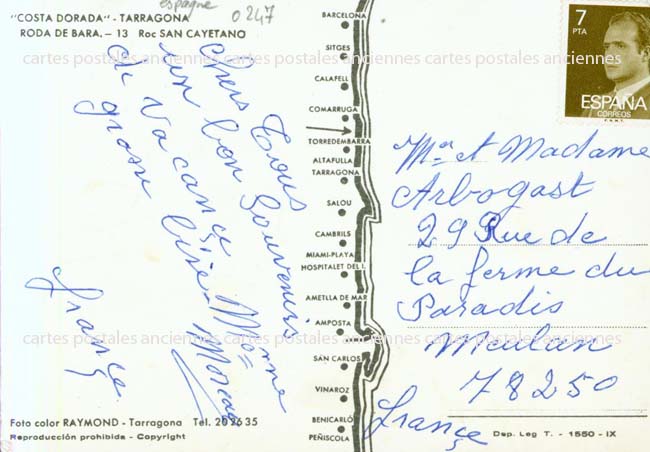 espagne
0247
"COSTA DORADA" - TARRAGONA
RODA DE BARA, - 13 Roc SAN CAYETANO
Chers Tous
un bon Souvenirs
de Vacançe
grosse Bise
Monne
Moreau
françe
Foto color RAYMOND - Tarragona Tel. 20 26 35
Reproducción prohibida - Copyright
BARCELONA
SITGES
CALAFELL
COMARRUGA
TORREDEMBARRA
ALTAFULLA
TARRAGONA
SALOU
CAMBRILS
MIAMI-PLAYA
HOSPITALET DEL I.
AMETLLA DE MAR
AMPOSTA
SAN CARLOS
VINAROZ
BENICARLÓ
PEÑISCOLA
7
PTA
ESPAÑA
CORREOS
F.N.M.T.
Mr et Madame
Arbogast
29 Rue de
la ferme du
Paradis
Meulan
78250
françe
Dep. Leg T. - 1550 - IX
cartes postales anciennes cartes postales anciennes
cartes postales anciennes cartes postales anciennes